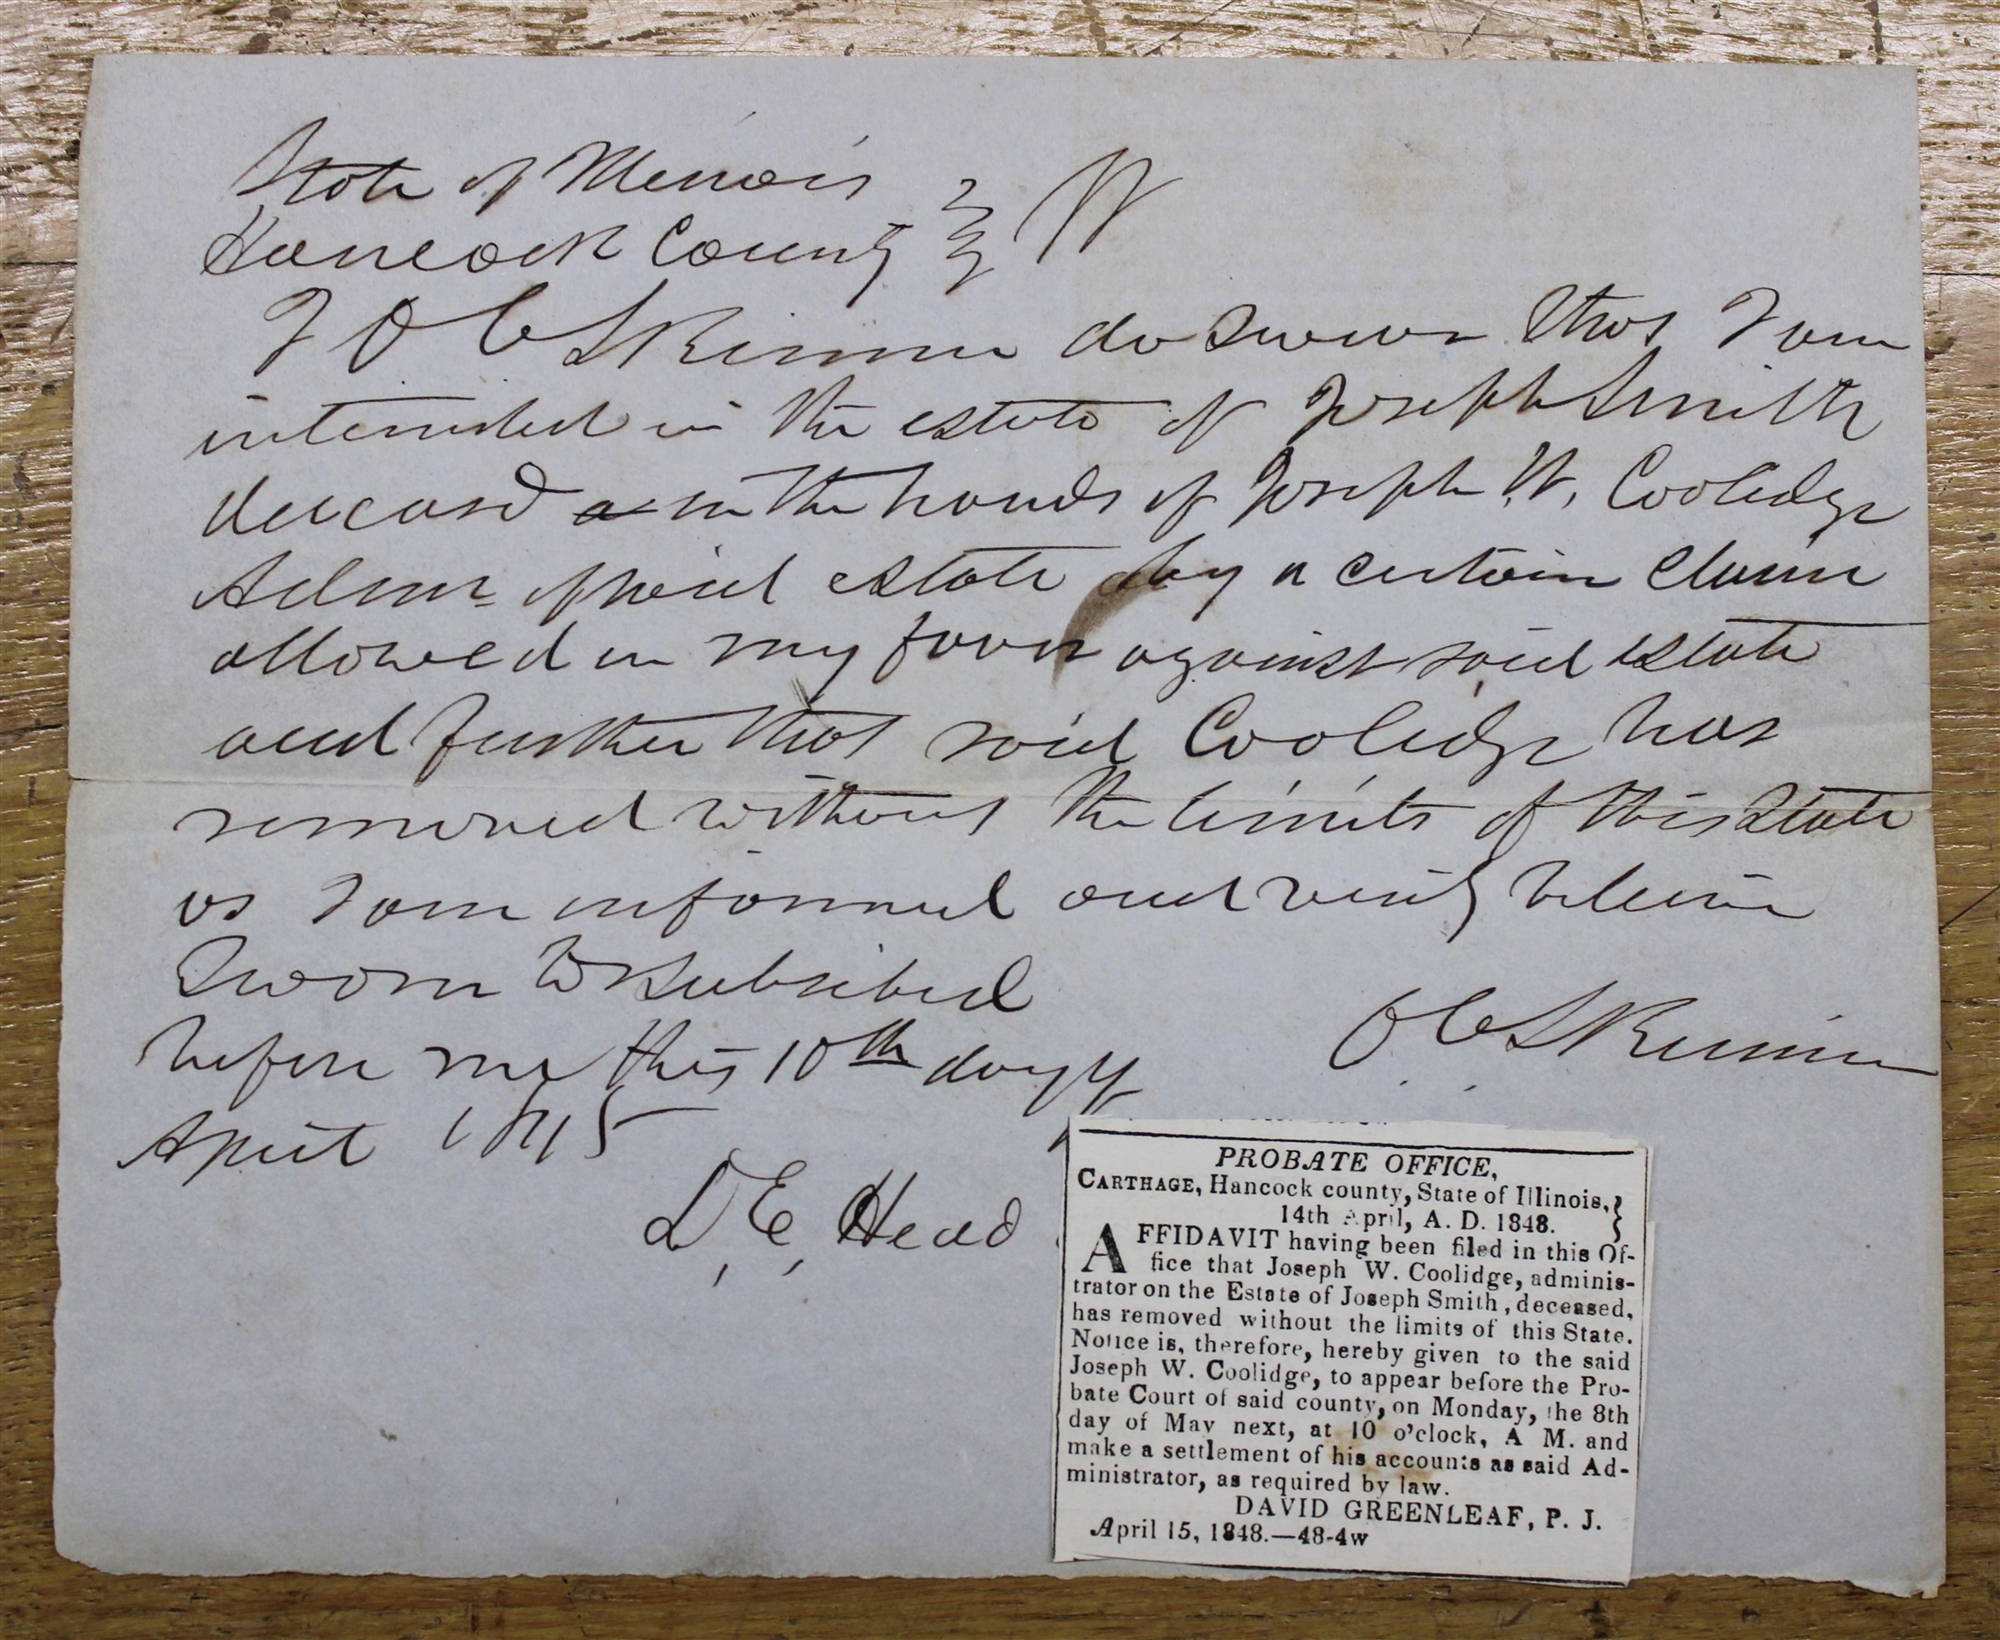 State of Illinois
Hancock County } ss
I O C Skinner do swear that I am
interested in the estate of Joseph Smith
deceased a in the hands of Joseph W. Coolidge
Admr of said estate by a certain claim
allowed in my favor against said estate
and further that said Coolidge has
removed without the limits of this State
as I am informed and verily believe
Sworn to & subscribed
before me this 10th day of
O C Skinner
April 1848
D. E. Head
PROBATE OFFICE,
CARTHAGE, Hancock county, State of Illinois, }
14th April, A. D. 1848.
AFFIDAVIT having been filed in this Of-
fice that Joseph W. Coolidge, adminis-
trator on the Estate of Joseph Smith, deceased,
has removed without the limits of this State.
Notice is, therefore, hereby given to the said
Joseph W. Coolidge, to appear before the Pro-
bate Court of said county, on Monday, the 8th
day of May next, at 10 o'clock, A M. and
make a settlement of his accounts as said Ad-
ministrator, as required by law.
DAVID GREENLEAF, P. J.
April 15, 1848.—48-4w